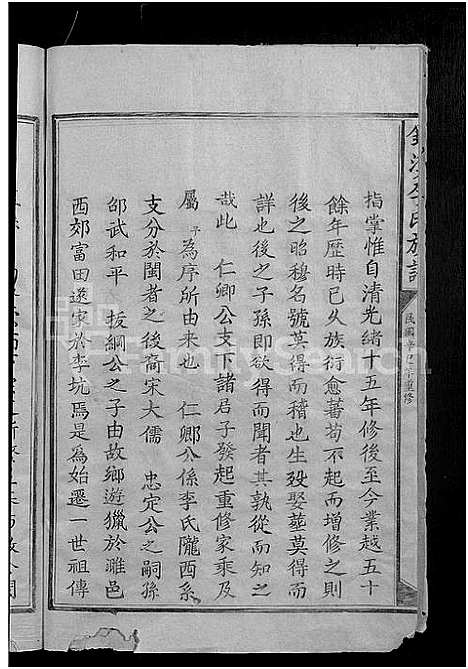 李氏族譜
民國辛巳年重修
指掌惟自清光緒十五年修後至今業越五十
餘年歷時已久族衍愈蕃苟不起而增修之則
後之昭穆名號莫得而稽也生歿娶葬莫得而
詳也後之子孫即欲得而聞者其孰從而知之
哉此 仁卿公支下諸君子發起重修家乘及
屬予為序所由來也 仁卿公係李氏隴西系
支分於閩者之後裔宋大儒 忠定公之嗣孫
邵武和平 拔綱公之子由故鄉遊獵於雎邑
西郊富田遂家於李坑焉是為始遷一世祖傳
FamilySearch